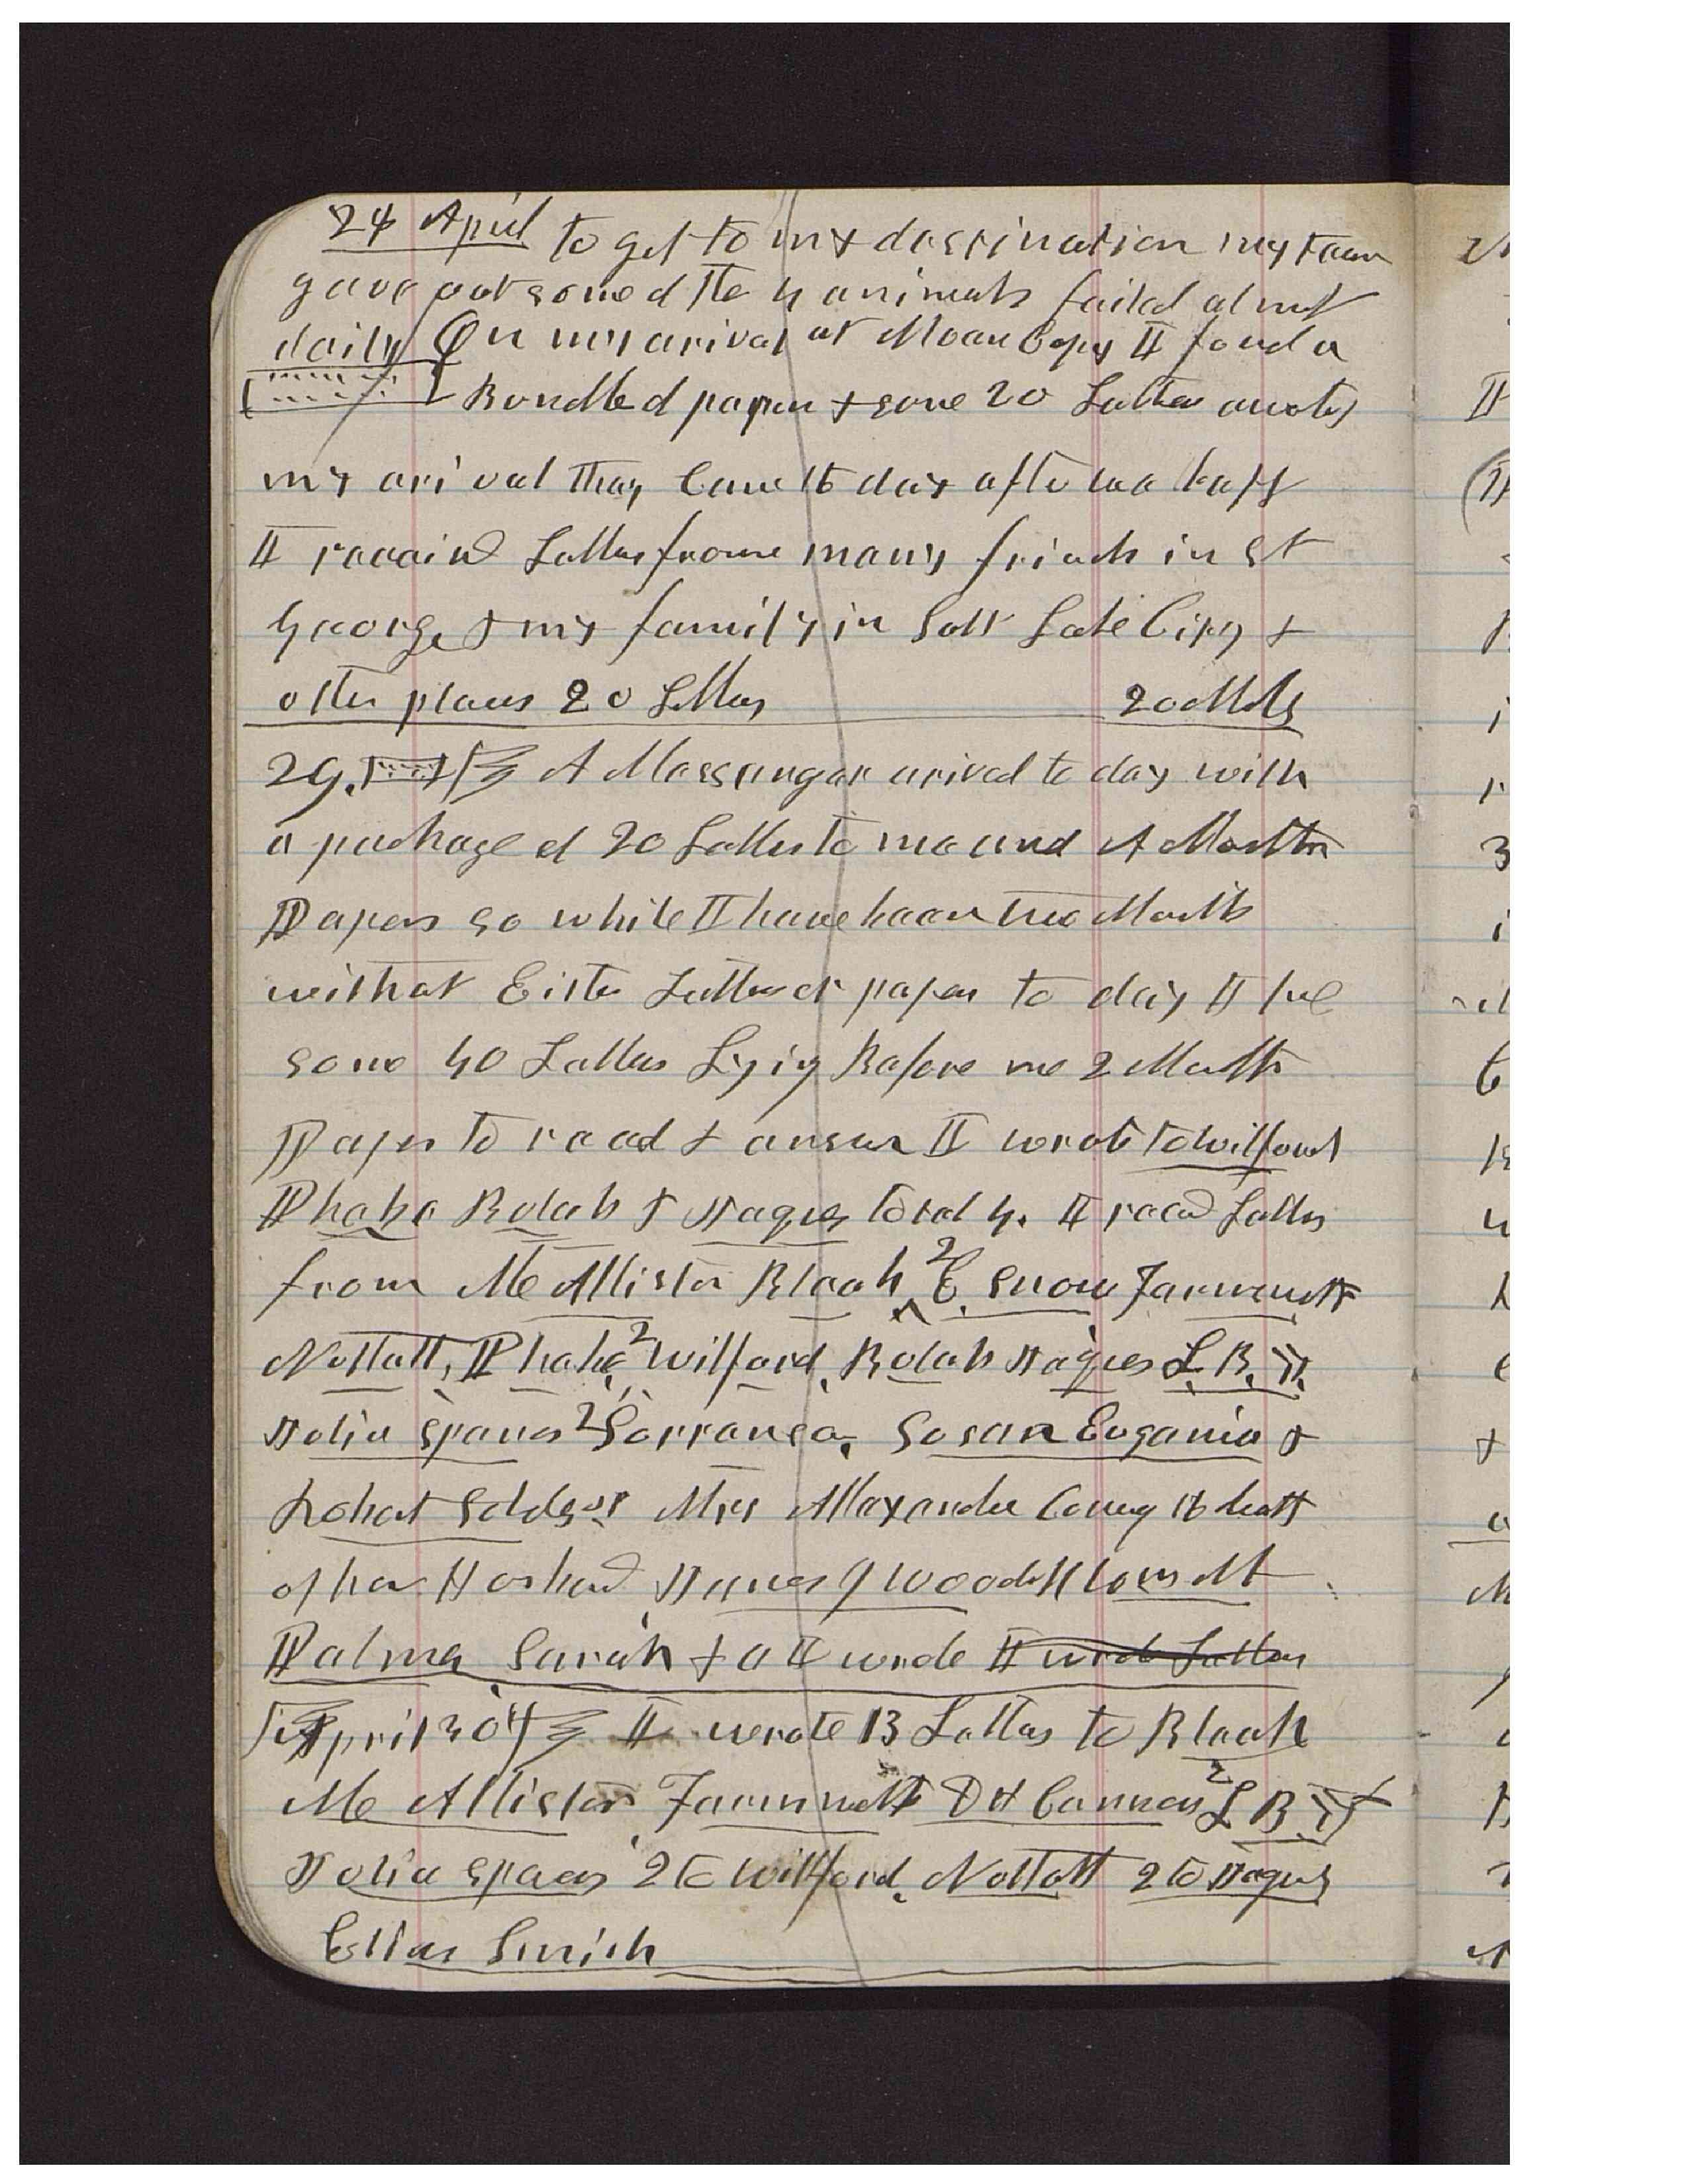 24 April to get to my destination my team
gave out some of the 4 animals failed almost
daily On my arival at Moan Copy I found a
Bundle of papers & some 20 Letters awaiting
my arival They Came 16 days after we left
I receivd Letters from many friends in St
George & my family in Salt Lake City &
other places 20 Letters 20 Mils
29. A Messenger arived to day with
a package of 20 Letters to me and A Months
Papers so while I have been two Months
without Either Letters or papers to day I
some 40 Letters Lying Before me 2 Months
Papers to read & answer I wrote to Wilford
Phebe Bulah & Jaques total 4. I recd Letters
from McAllister Bleak 2 E. Snow Farnsworth
Nuttall, Phebe 2 Wilford, Bulah Jaques L. B. Y.
Julia Spencer 2 Lorranea, Susan Eugania &
Robert Scholes Mrs Allexander Coucy 16 death
of her Husband James J Woodd Thomas M
Palmer Sarah & all wrote I wrote Letters
April 30th I wrote 13 Letters to Bleak
Mc Allister Farnsworth D H Cannon 2 L B Y
Julia Spencer 2 to Wilford, Nuttall 2 to Jaques
Elias Smith